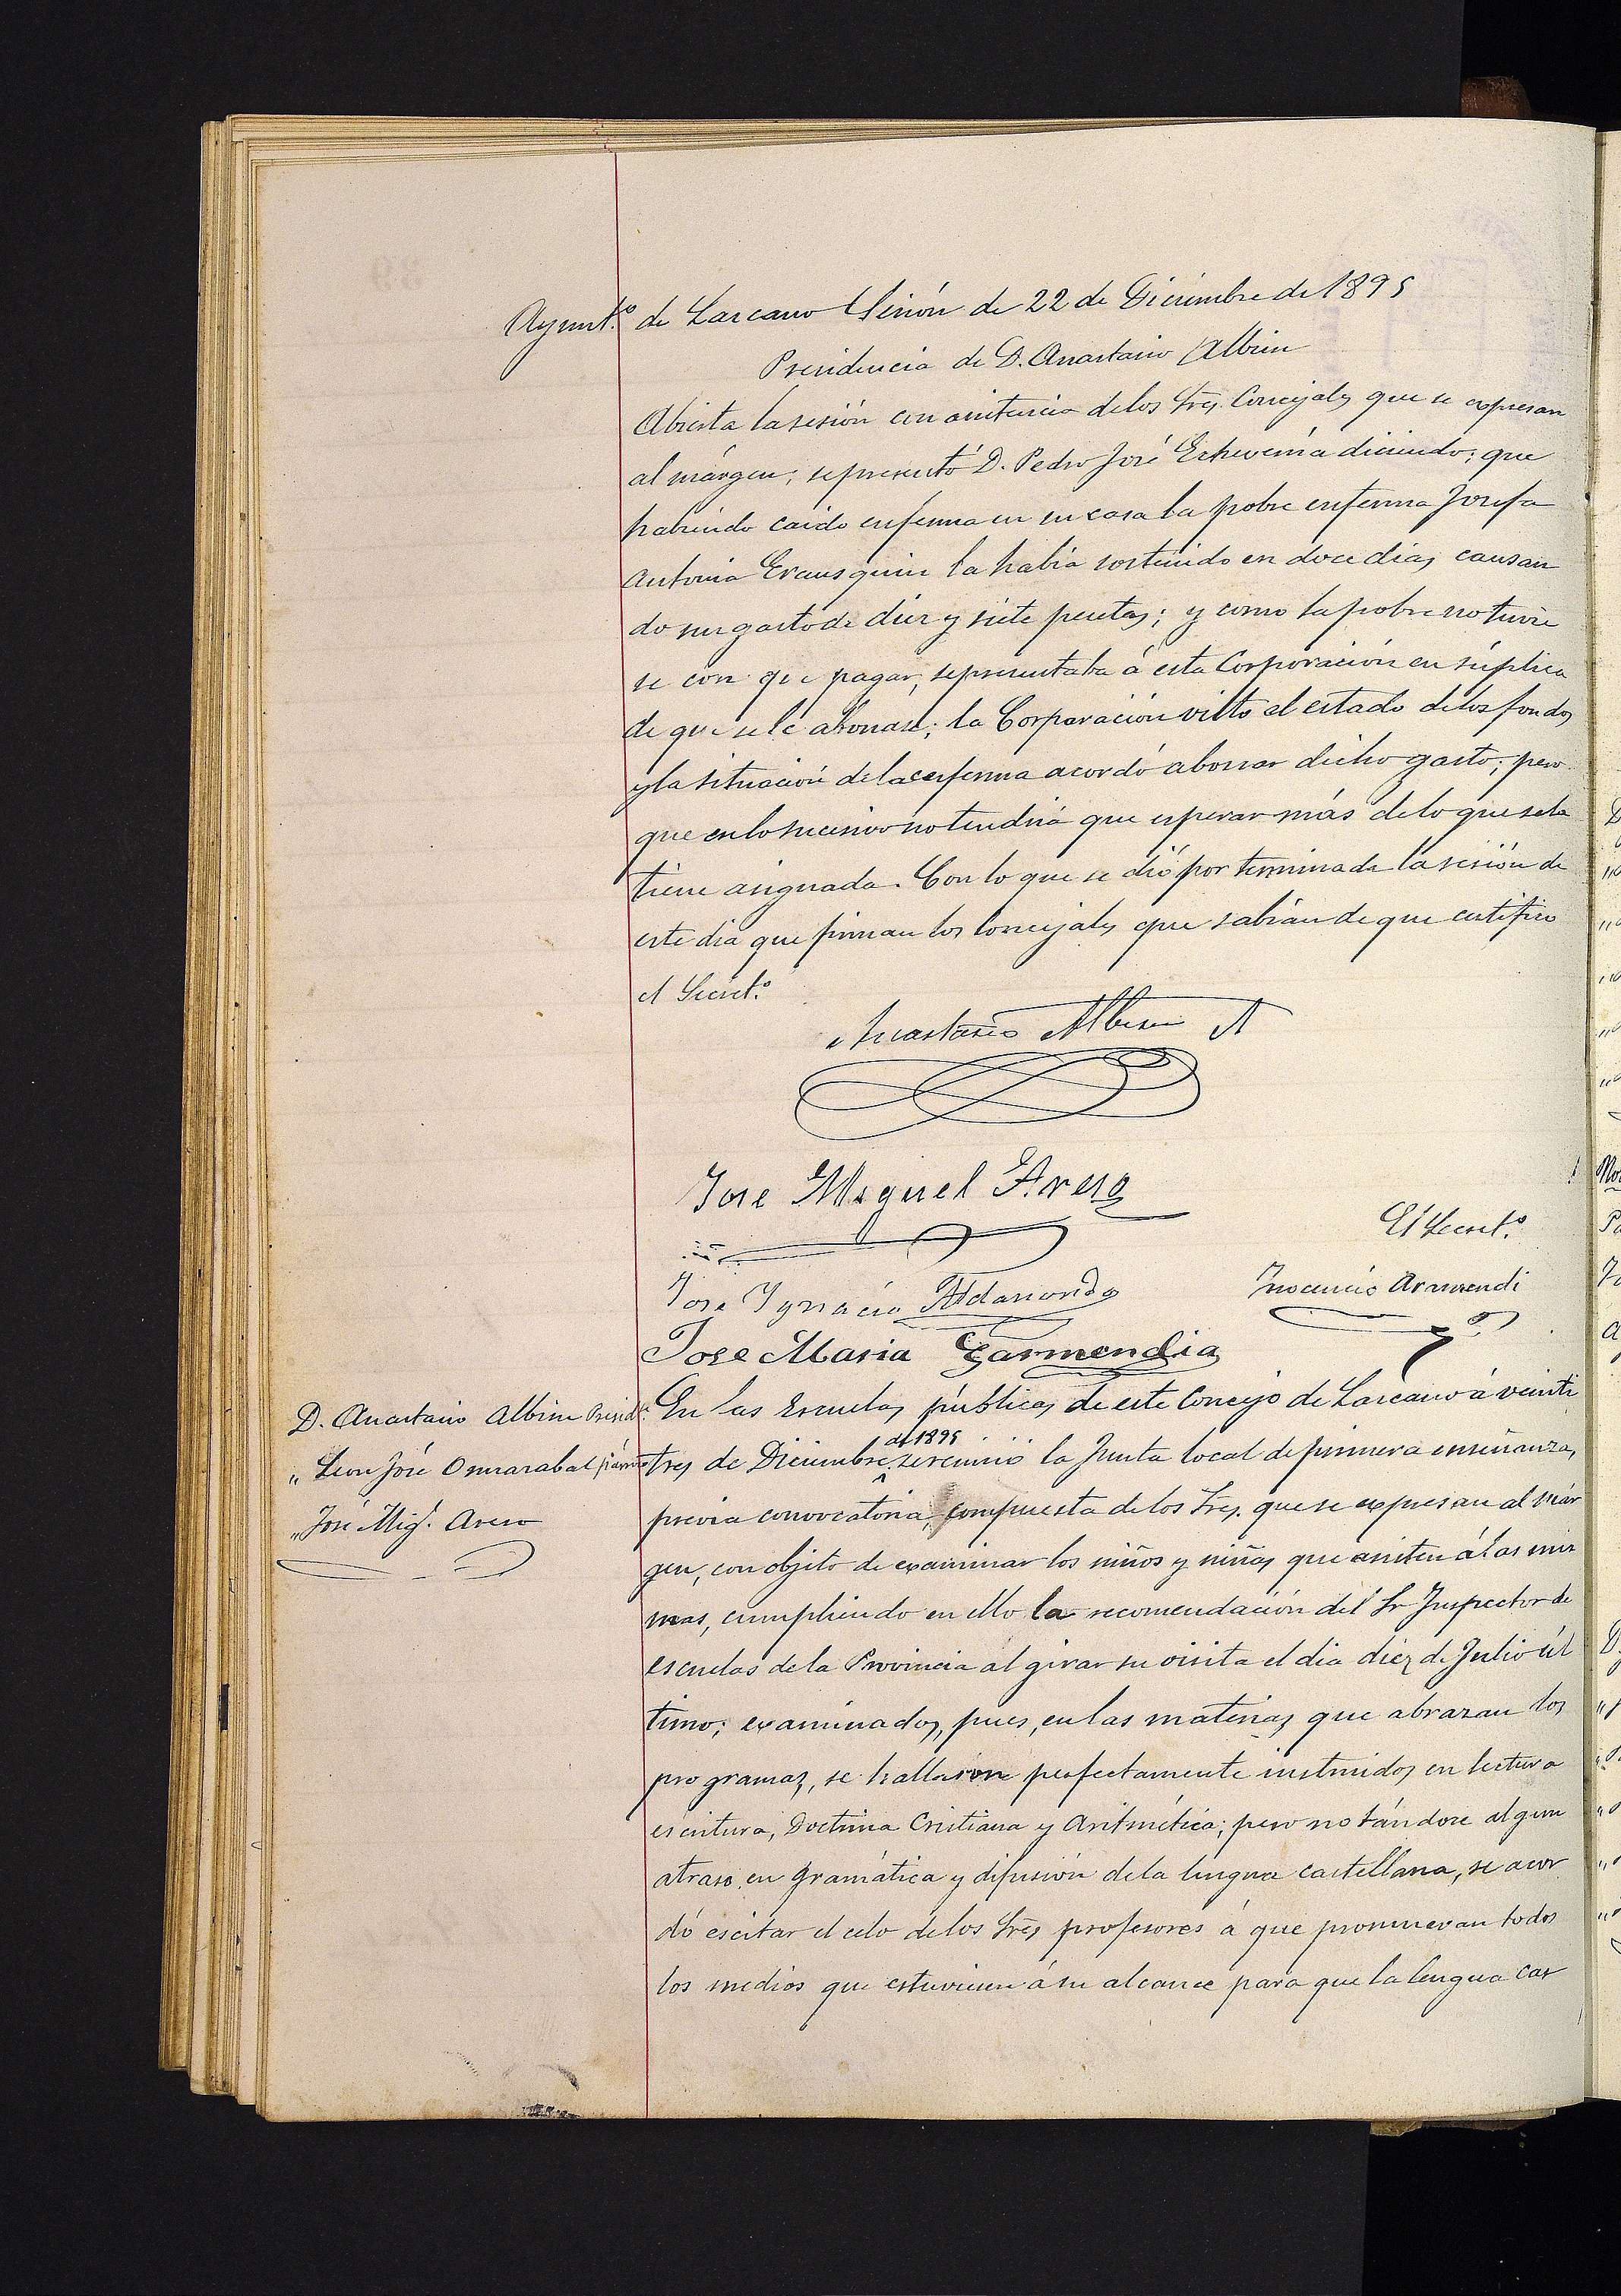 Ayunt.º de Lazcano Sesión de 22 de Diciembre de 1895
Presidencia de D. Anastasio Albisu
Abierta la sesión con asistencia de los Sres. Concejales que se expresan
al márgen, se presentó D. Pedro José Echeverria diciendo; que
habiendo caido enferma en su casa la pobre enferma Josefa
Antonia Erausquin la habia sostenido en doce dias causan
do un gasto de diez y siete pesetas; y como la pobre no tuvie
se con que pagar, se presentaba á esta Corporación en súplica
de que se le abonase; la Corporación visto el estado de los fondos
y la situación de la enferma acordó abonar dicho gasto; pero
que en lo sucesivo no tendriá que esperar más de lo que se la
tiene asignada. Con lo que se dió por terminada la sesión de
este dia que firman los Concejales que sabian de que certifico
el Secret.º
Anastasio Albisu
Jose Miguel Areso
El Secret.º
Jose Ygnacio Aldasoro
Inocencio Armendi
Jose Maria Garmendia
D. Anastasio Albisu Presid.e
" Leon José Onnarabal párroco
" José Mig.l Areso
En las Escuelas públicas de este Concejo de Lazcano á veinti
tres de Diciembre de 1895 se reunió la Junta local de primera enseñanza,
previa convocatoria, compuesta de los Sres. que se expresan al már
gen, con objeto de examinar los niños y niñas que asisten á las mis
mas, cumpliendo en ello la recomendación del Sr Inspector de
escuelas de la Provincia al girar su visita el dia diez de Julio úl
timo; examinados, pues, en las materias que abrazan los
programas, se hallaron perfectamente instruidos en lectura
escritura, Doctrina Cristiana y Aritmética; pero notándose algun
atraso en gramática y difusión de la lengua castellana, se acor
dó escitar el celo de los Sres profesores á que promuevan todos
los medios que estuviesen á su alcance para que la lengua cas